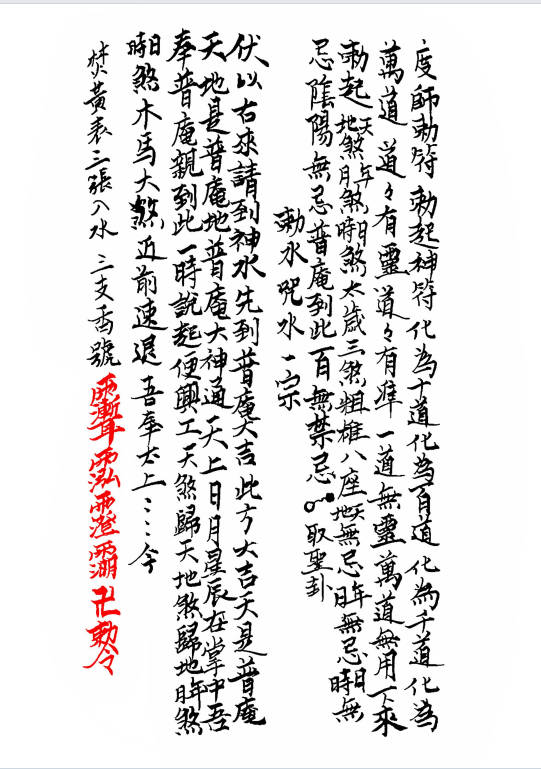 度師勅符 勅起神符化為十道化為百道 化為千道化為
萬道 道々有靈道々有准 一道無靈萬道無用下來
勅起天地煞年月煞日時煞太歲三煞粗椎八座天地無忌年月無忌日時無
忌陰陽無忌普庵到此百無禁忌 取聖卦
勅水咒水一宗
伏以右來請到神水先到普庵大吉此方大吉天是普庵
天地是普庵地普庵大神通天上日月星辰在掌中吾
奉普庵親到此一時說起便興工天煞歸天地煞歸地年月煞
日時煞木馬大煞近前速退 吾奉太上：：：令
焚黃表三張入水 三支香號 卍勅令